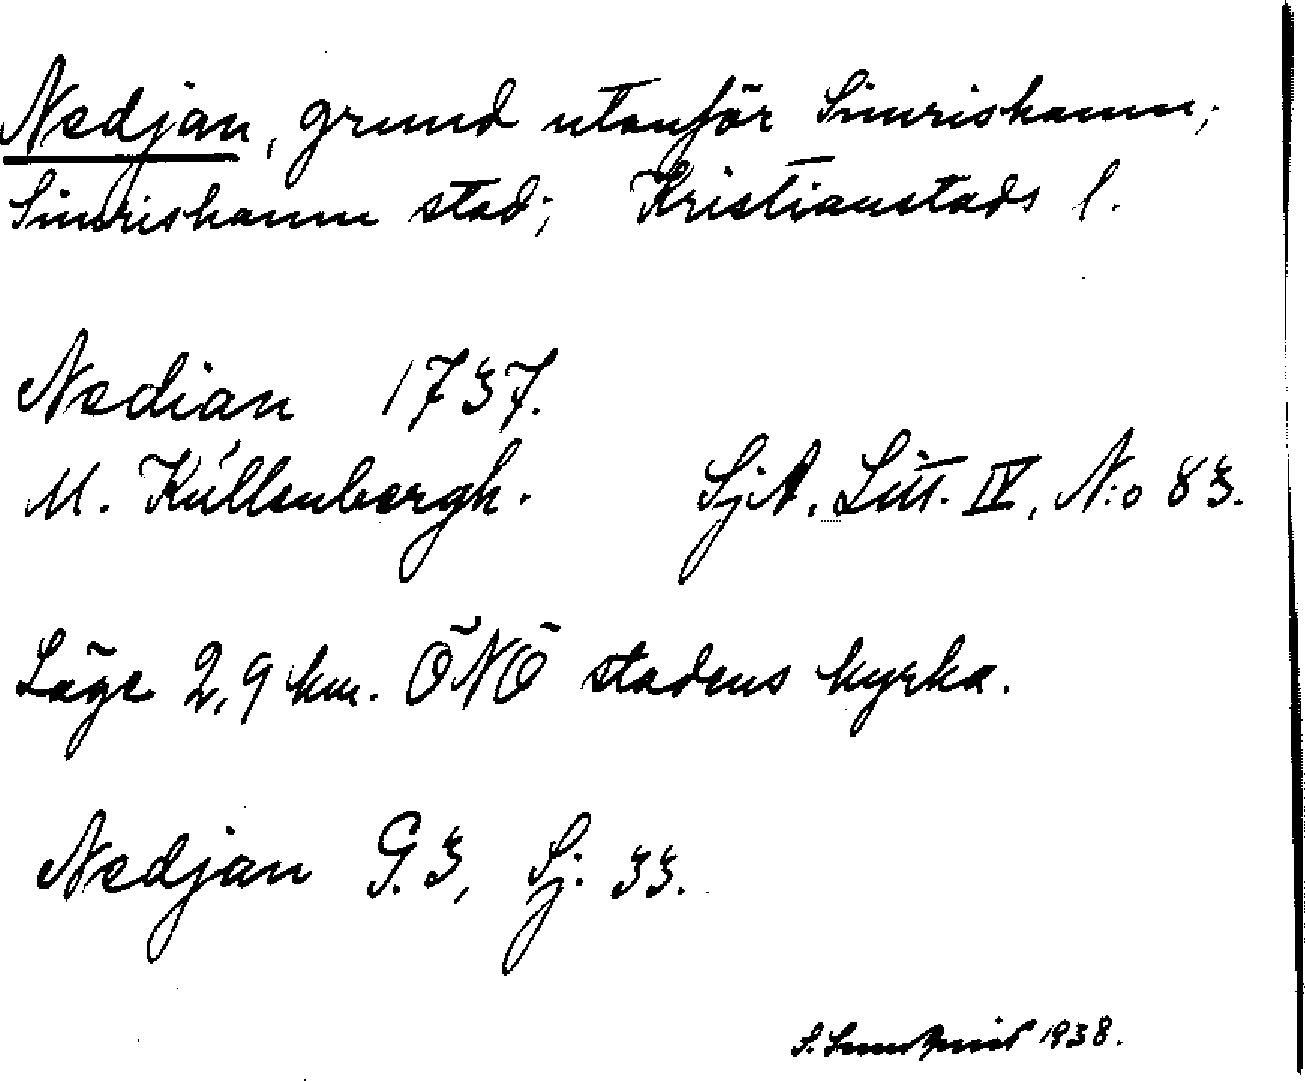 Nedjan, grund utanför Simrishamn;
Simrishamn stad; Kristianstads l.
Nedian 1737.
M. Kullenbergh. SjA. Litt. IV, N:o 83.
Läge 2,9 km. ÖNÖ stadens kyrka.
Nedjan G. 3, Sj: 33.
S. 1938.